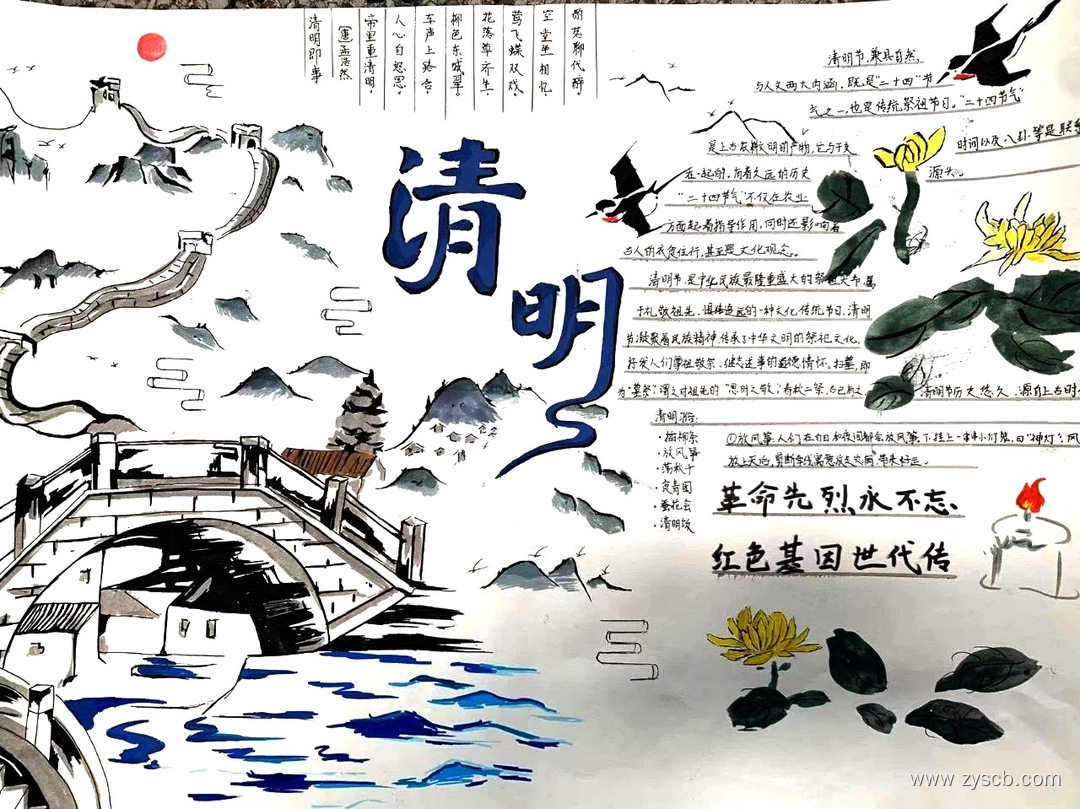 清明即事
[唐]孟浩然
帝里重清明，
人心自愁思。
车声上路合，
柳色东城翠。
花落草齐生，
莺飞蝶双戏。
空堂坐相忆，
酌茗聊代醉
清明
清明节，兼具自然
与人文两大内涵，既是"二十四"节
气之一，也是传统祭祖节日。"二十四节气"
是上古农耕文明的产物，它与干支
时间以及八卦等是联系
在一起的，有着久远的历史
源头。
"二十四节气"不仅在农业
方面起着指导作用，同时还影响着
古人的衣食住行，甚至是文化观念。
清明节，是中华民族最隆重盛大的祭祖大节，属
于礼敬祖先、慎终追远的一种文化传统节日，清明
节凝聚着民族精神，传承了中华文明的祭祀文化，
抒发人们尊祖敬宗、继志述事的道德情怀。扫墓，即
为"墓祭"，谓之对祖先的"思时之敬"，春秋二祭，古已有之
清明节历史悠久，源自上古时
清明
·插柳条
·放风筝
·荡秋千
·食青团
·蚕花会
·清明饭
①放风筝：人们在白日和夜间都会放风筝，下挂上一串串小灯笼，曰"神灯"，风
放上天后，剪断牵线寓意放走灾病，带来好运。
革命先烈永不忘
红色基因世代传
www.zyscb.com